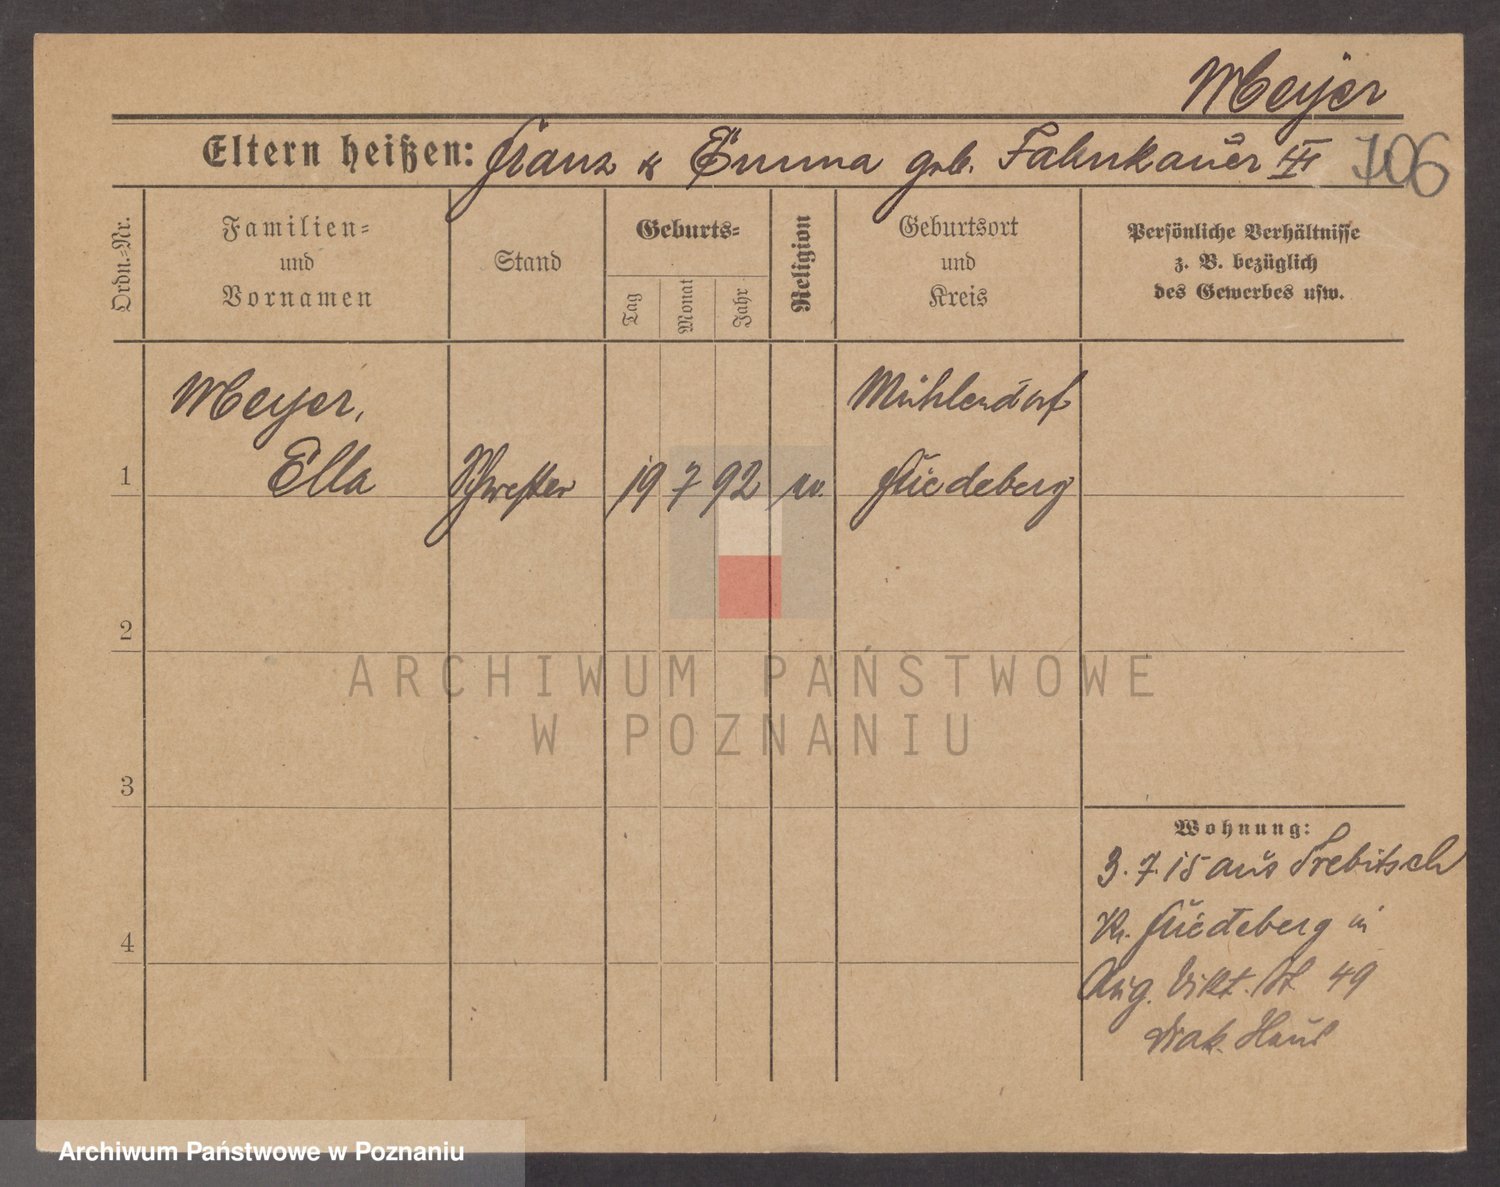 Meyer
Eltern heißen: Franz & Emma geb. Fahnkauer III 706
Ordn.-Nr.
Familien-
und
Vornamen
Stand
Geburts-
Tag
Monat
Jahr
Religion
Geburtsort
und
Kreis
Persönliche Verhältnisse
z. B. bezüglich
des Gewerbes usw.
Meyer,
Mühlendorf
1 Ella Schwester 19 7 92 ev. Friedeberg
2
3
4
Wohnung:
3.7.15 aus Trebitsch
Kr. Friedeberg in
Aug. Vikt. St 49
Diak. Haus
ARCHIWUM PAŃSTWOWE
W POZNANIU
Archiwum Państwowe w Poznaniu